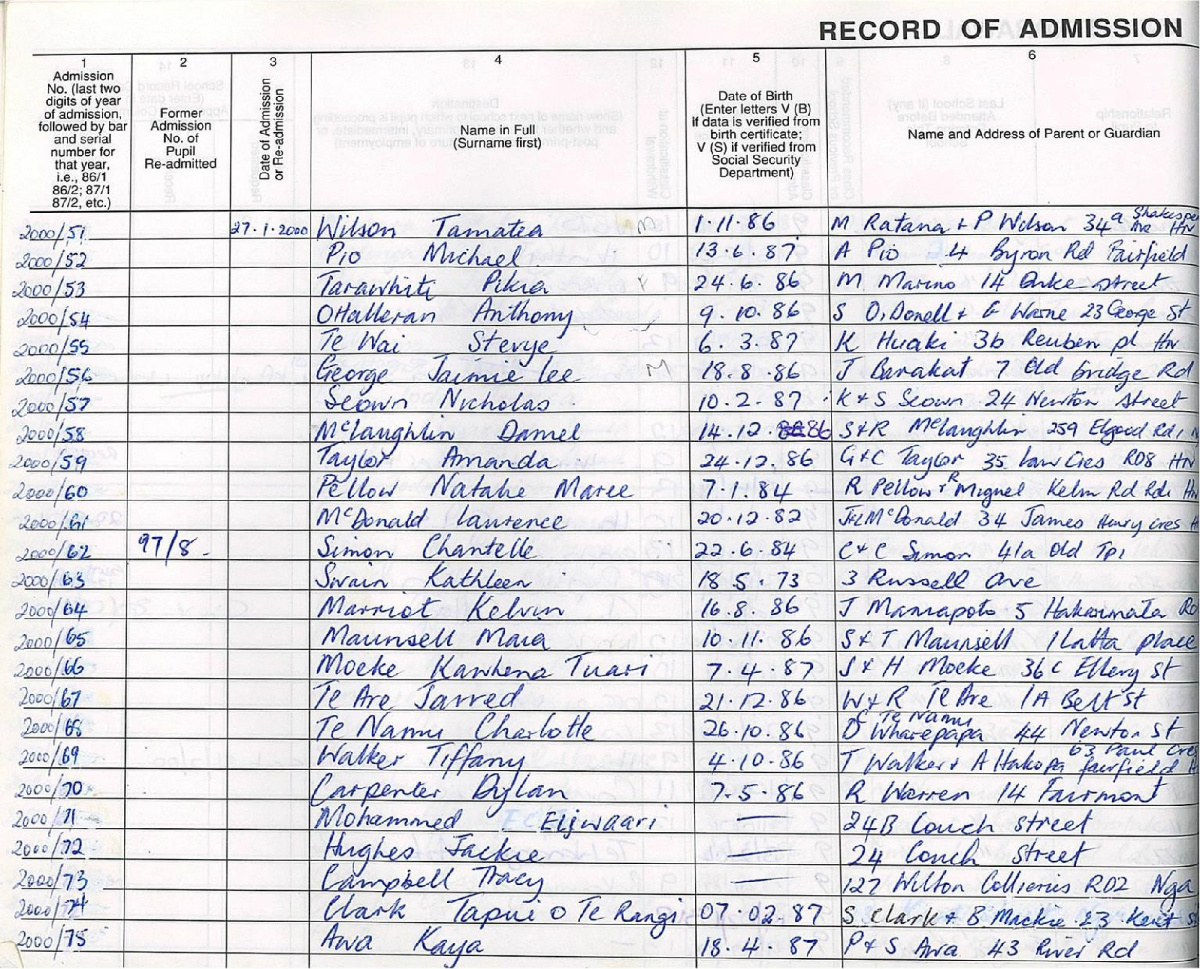 RECORD OF ADMISSION
1 2 3 4 5 6
Admission No. (last two digits of year of admission, followed by bar and serial number for that year, i.e., 86/1 86/2; 87/1 87/2, etc.)
Former Admission No. of Pupil Re-admitted
Date of Admission or Re-admission
Name in Full (Surname first)
Date of Birth (Enter letters V (B) if data is verified from birth certificate; V (S) if verified from Social Security Department)
Name and Address of Parent or Guardian
2000/51 27.1.2000 Wilson Tamatea 1.11.86 M Ratana + P Wilson 34a Ave Hn
2000/52 Pio Michael 13.6.87 A Pio 4 Byron Rd Fairfield
2000/53 Tarawhiti Pikia 24.6.86 M Marino 14 Duke street
2000/54 OHalleran Anthony 9.10.86 S O'Donell + G Warne 23 George St
2000/55 Te Wai Stevye 6.3.87 K Huaki 3b Reuben pl Hn
2000/56 George Jaimie lee M 18.8.86 J Barakat 7 Old bridge Rd
2000/57 Seown Nicholas 10.2.87 K + S Seown 24 Newton Street
2000/58 McLaughlin Daniel 14.12.86 S+R McLaughlin 259 Elgood Rd
2000/59 Taylor Amanda 24.12.86 G+C Taylor 35 Law Cres RD8 Hn
2000/60 Pellow Natalie Maree 7.1.84 R Pellow + R Mignel Kelm Rd
2000/61 McDonald Lawrence 20.12.82 McDonald 34 James Henry cres
2000/62 97/8 Simon Chantelle 22.6.84 C+C Simon 41a Old Tpi
2000/63 Swain Kathleen 18.5.73 3 Russell Ave
2000/64 Marriot Kelvin 16.8.86 J Maniapoto 5 Hakarimata
2000/65 Maunsell Maia 10.11.86 S+T Maunsell 1 Latta place
2000/66 Moeke Kawhena Tuari 7.4.87 S+H Moeke 36c Ellery St
2000/67 Te Are Jarred 21.12.86 W+R Te Are 1A Belt St
2000/68 Te Namu Charlotte 26.10.86 C Te Namu D Wharepapa 44 Newton St
2000/69 Walker Tiffany 4.10.86 T Walker + A Hakopa 63 Paul Cres fairfield
2000/70 Carpenter Dylan 7.5.86 R Warren 14 Fairmont
2000/71 Mohammed Eljwaari — 24B Couch street
2000/72 Hughes Jackie — 24 Couch street
2000/73 Campbell Tracy — 127 Wilton Collieries RD2 Nga
2000/74 Clark Tapui o Te Rangi 07.02.87 S. Clark + B Mackie 23 Kent
2000/75 Awa Kaya 18.4.87 P+S Awa 43 River Rd